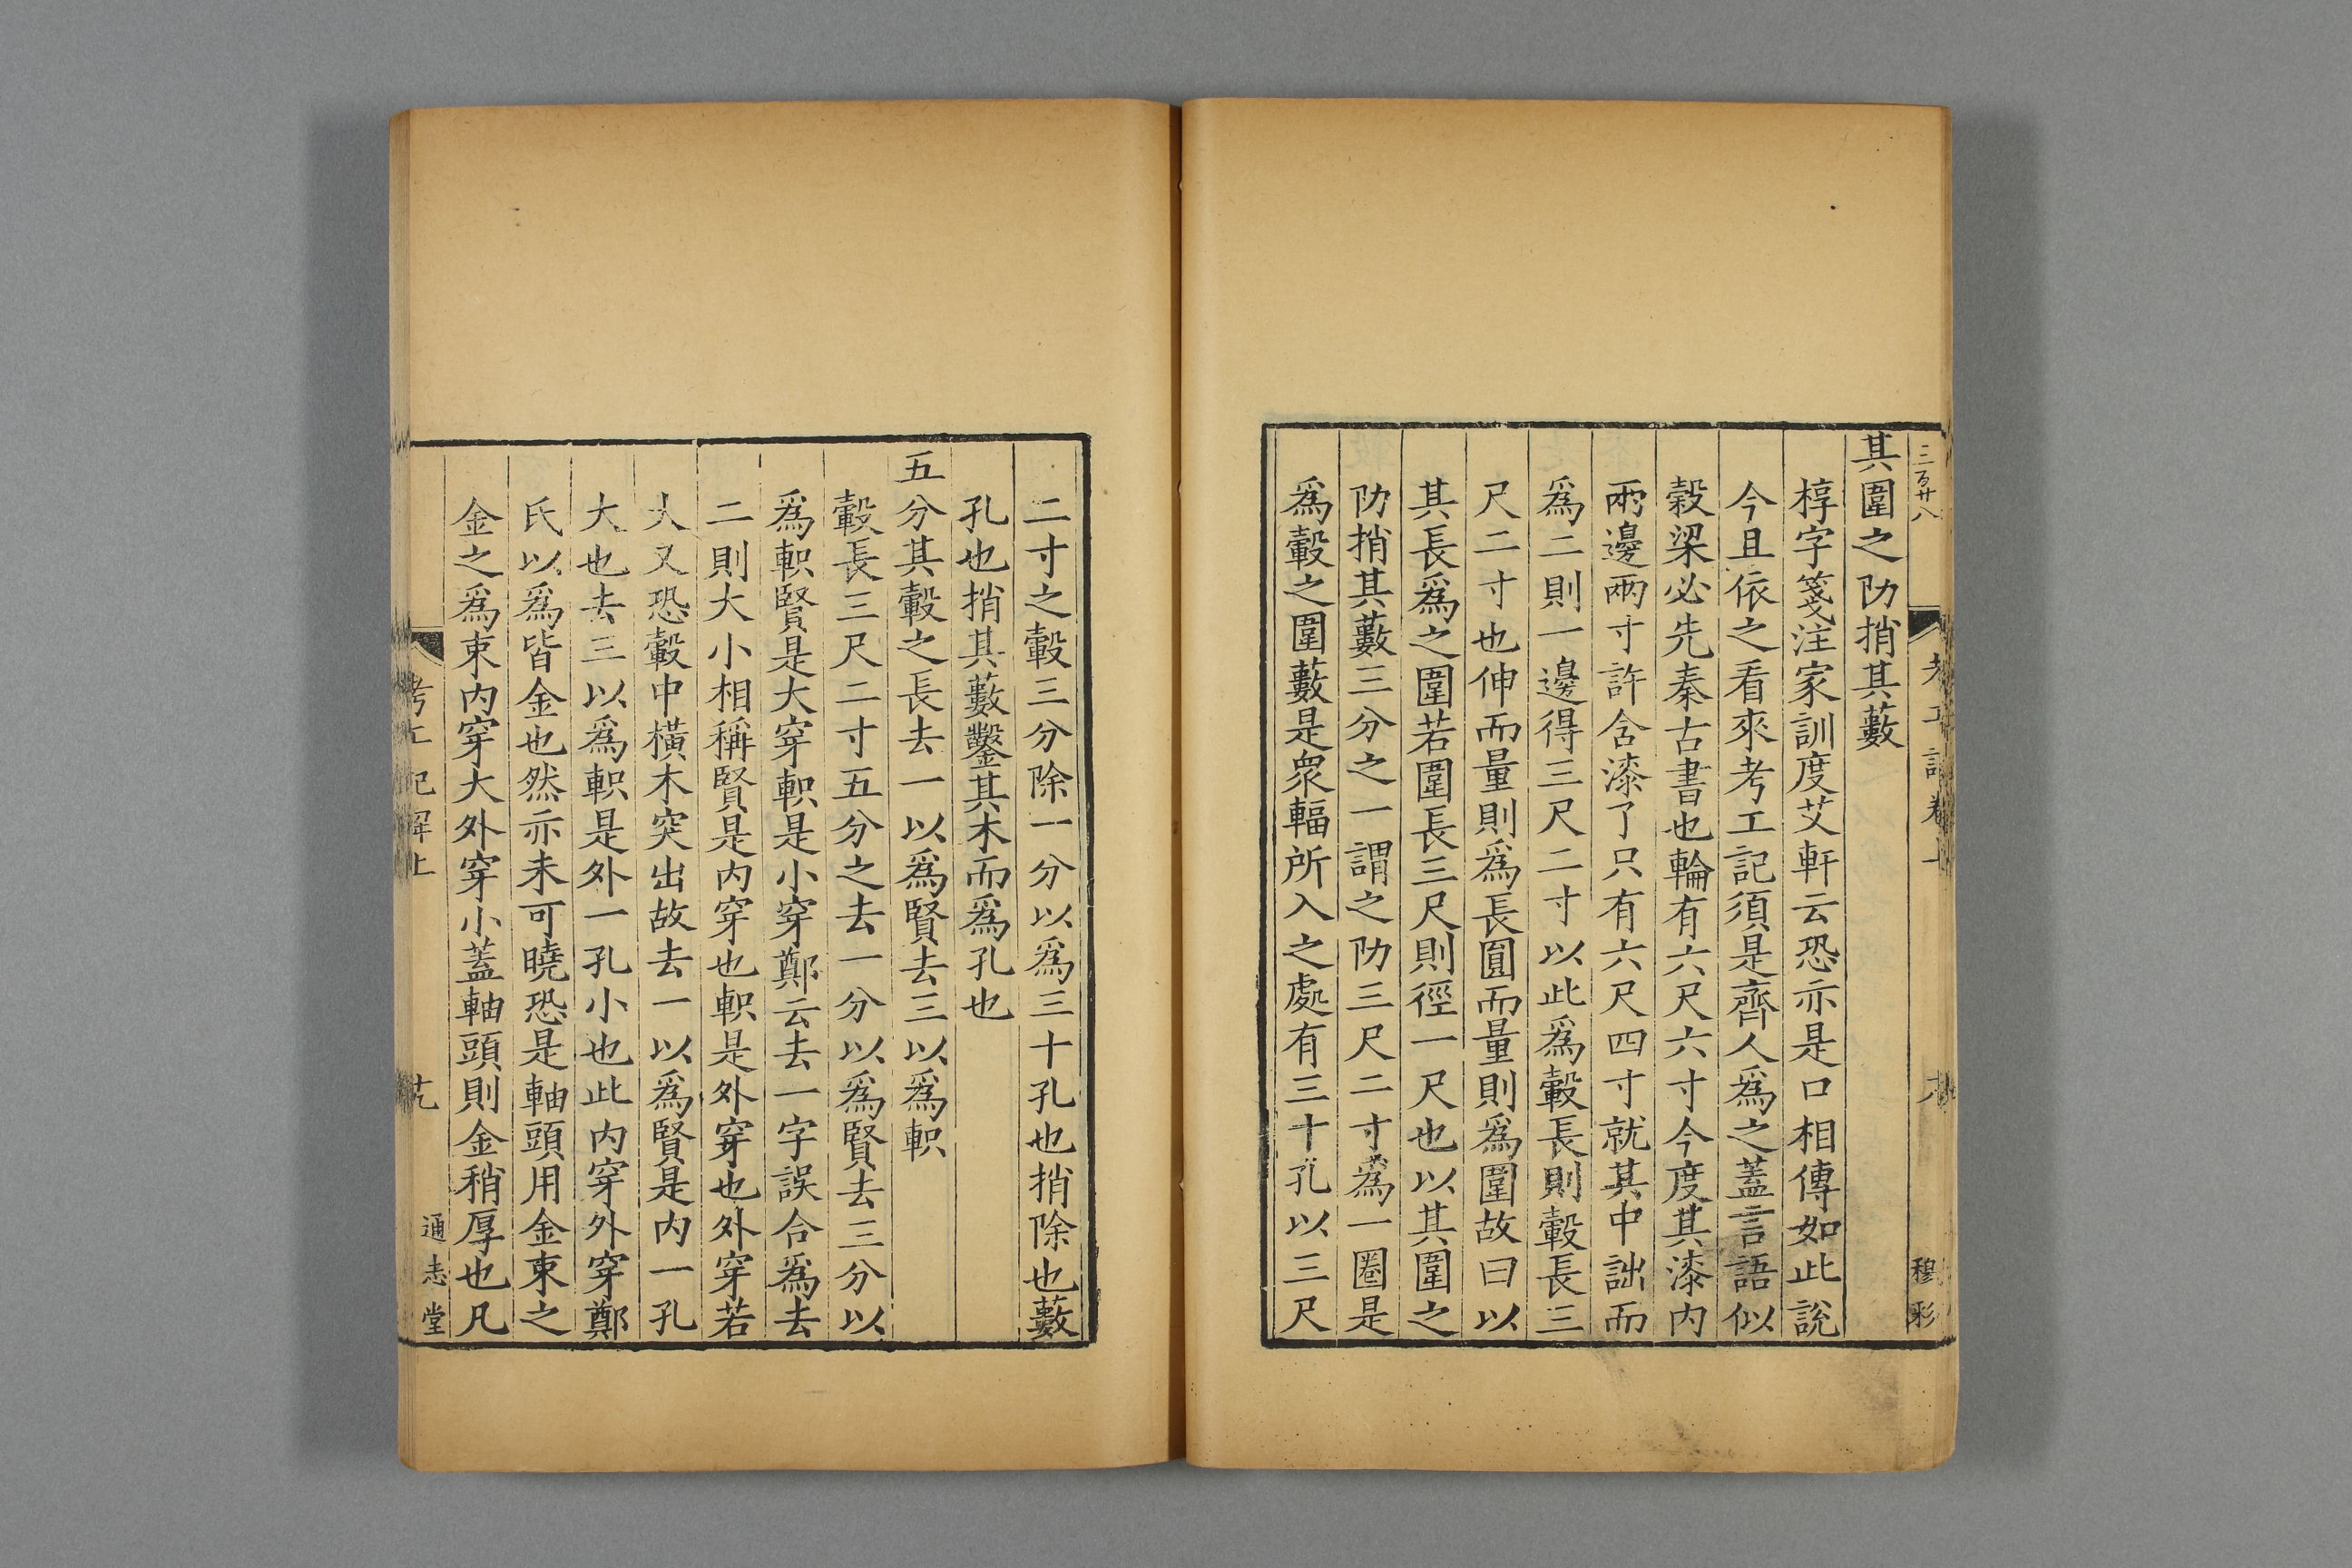 三百廿八
穆彩
其圍之阞捎其藪
椁字箋注家訓度艾軒云恐亦是口相傳如此說
今且依之看來考工記須是齊人爲之蓋言語似
穀梁必先秦古書也輪有六尺六寸今度其漆内
兩邊兩寸許含漆了只有六尺四寸就其中詘而
爲二則一邊得三尺二寸以此爲轂長則轂長三
尺二寸也伸而量則爲長圓而量則爲圍故曰以
其長爲之圍若圍長三尺則徑一尺也以其圍之
阞捎其藪三分之一謂之阞三尺二寸爲一圈是
爲轂之圍藪是衆輻所入之處有三十孔以三尺
二寸之轂三分除一分以爲三十孔也捎除也藪
孔也捎其藪鑿其木而爲孔也
五分其轂之長去一以爲賢去三以爲軹
轂長三尺二寸五分之去一分以爲賢去三分以
爲軹賢是大穿軹是小穿鄭云去一字誤合爲去
二則大小相稱賢是内穿也軹是外穿也外穿若
大又恐轂中橫木突出故去一以爲賢是内一孔
大也去三以爲軹是外一孔小也此内穿外穿鄭
氏以爲皆金也然亦未可曉恐是軸頭用金束之
金之爲束内穿大外穿小蓋軸頭則金稍厚也凡
考工記解上
通志堂